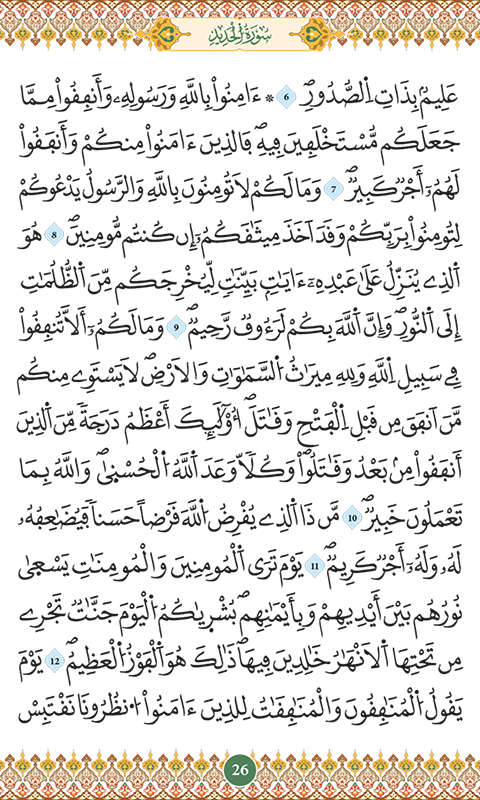 سُورَةُ الْحَدِيدِ
عَلِيمُۢ بِذَاتِ اِ۬لصُّدُورِۖ 6 ۞ ءَامِنُواْ بِاللَّهِ وَرَسُولِهِۦ وَأَنفِقُواْ مِمَّا
جَعَلَكُم مُّسْتَخْلَفِينَ فِيهِۖ فَالذِينَ ءَامَنُواْ مِنكُمْ وَأَنفَقُواْ
لَهُمُۥٓ أَجْرٞ كَبِيرٞۖ 7 وَمَا لَكُمْ لَا تُومِنُونَ بِاللَّهِ وَالرَّسُولُ يَدْعُوكُمْ
لِتُومِنُواْ بِرَبِّكُمْ وَقَدَ اَخَذَ مِيثَٰقَكُمُۥٓ إِن كُنتُم مُّومِنِينَۖ 8 هُوَ
اَ۬لذِے يُنَزِّلُ عَلَىٰ عَبْدِهِۦٓ ءَايَٰتِۢ بَيِّنَٰتٖ لِّيُخْرِجَكُم مِّنَ اَ۬لظُّلُمَٰتِ
إِلَى اَ۬لنُّورِۖ وَإِنَّ اَ۬للَّهَ بِكُمْ لَرَءُوفٞ رَّحِيمٞۖ 9 وَمَا لَكُمُۥٓ أَلَّا تُنفِقُواْ
فِے سَبِيلِ اِ۬للَّهِ وَلِلهِ مِيرَٰثُ اُ۬لسَّمَٰوَٰتِ وَالَارْضِۖ لَا يَسْتَوِے مِنكُم
مَّنَ اَنفَقَ مِن قَبْلِ اِ۬لْفَتْحِ وَقَٰتَلَۖ أُوْلَٰٓئِكَ أَعْظَمُ دَرَجَةٗ مِّنَ اَ۬لذِينَ
أَنفَقُواْ مِنۢ بَعْدُ وَقَٰتَلُواْۖ وَكُلّٗا وَعَدَ اَ۬للَّهُ اُ۬لْحُسْن۪يٰۖ وَاللَّهُ بِمَا
تَعْمَلُونَ خَبِيرٞۖ 10 مَّن ذَا اَ۬لذِے يُقْرِضُ اُ۬للَّهَ قَرْضاً حَسَناٗ فَيُضَٰعِفُهُۥ
لَهُۥ وَلَهُۥٓ أَجْرٞ كَرِيمٞۖ 11 يَوْمَ تَرَى اَ۬لْمُومِنِينَ وَالْمُومِنَٰتِ يَسْع۪يٰ
نُورُهُم بَيْنَ أَيْدِيهِمْ وَبِأَيْمَٰنِهِمۖ بُشْر۪يٰكُمُ اُ۬لْيَوْمَ جَنَّٰتٞ تَجْرِے
مِن تَحْتِهَا اَ۬لَانْهَٰرُ خَٰلِدِينَ فِيهَاۖ ذَٰلِكَ هُوَ اَ۬لْفَوْزُ اُ۬لْعَظِيمُۖ 12 يَوْمَ
يَقُولُ اُ۬لْمُنَٰفِقُونَ وَالْمُنَٰفِقَٰتُ لِلذِينَ ءَامَنُواْ اُ۟نظُرُونَا نَقْتَبِسْ
26